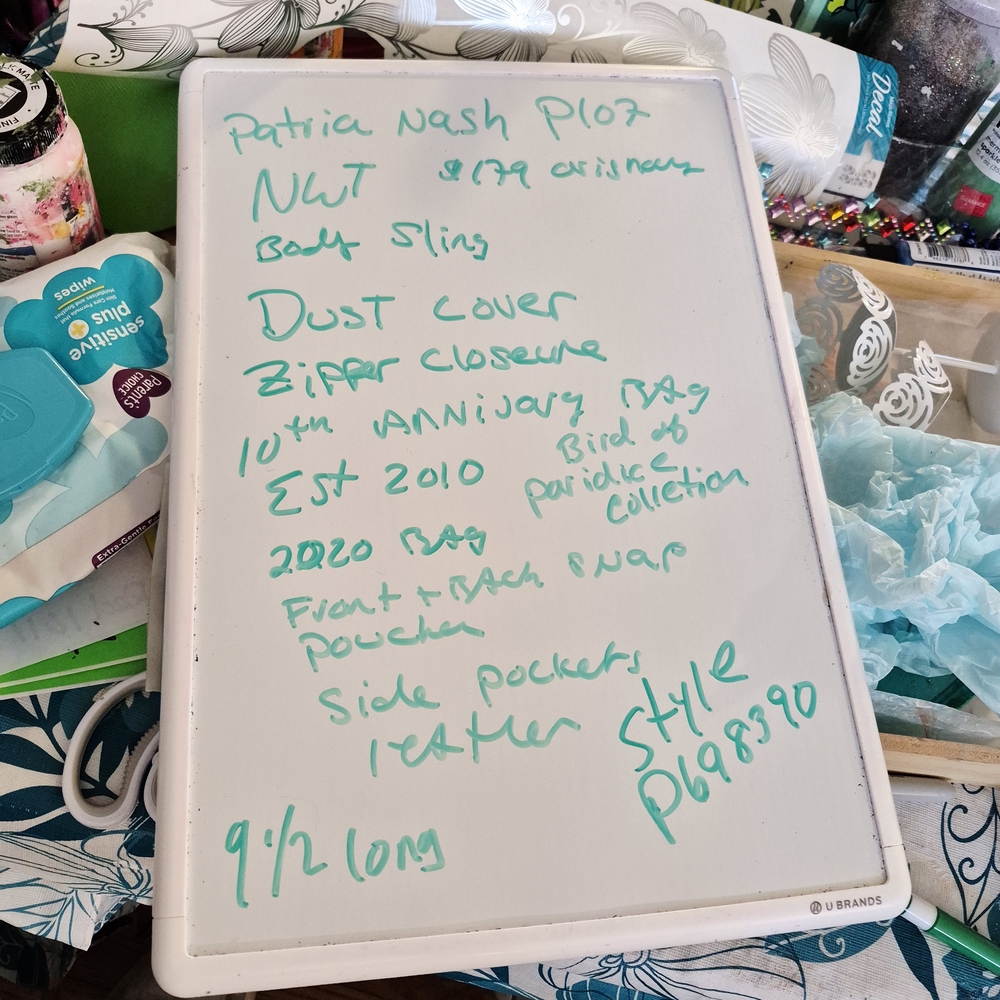 Patria Nash P107
NWT $179 orisnow
Body Sling
Dust cover
Zipper closeure
10th Annivary BAg
Est 2010
Bird of
paridice
colletion
2020 BAg
Front + BAck snap
poucher
Side pockets
leather
Style
P698390
9 1/2 long
U BRANDS
Decal
sensitive
plus+
wipes
Parent's
CHOICE
Extra-Gentle